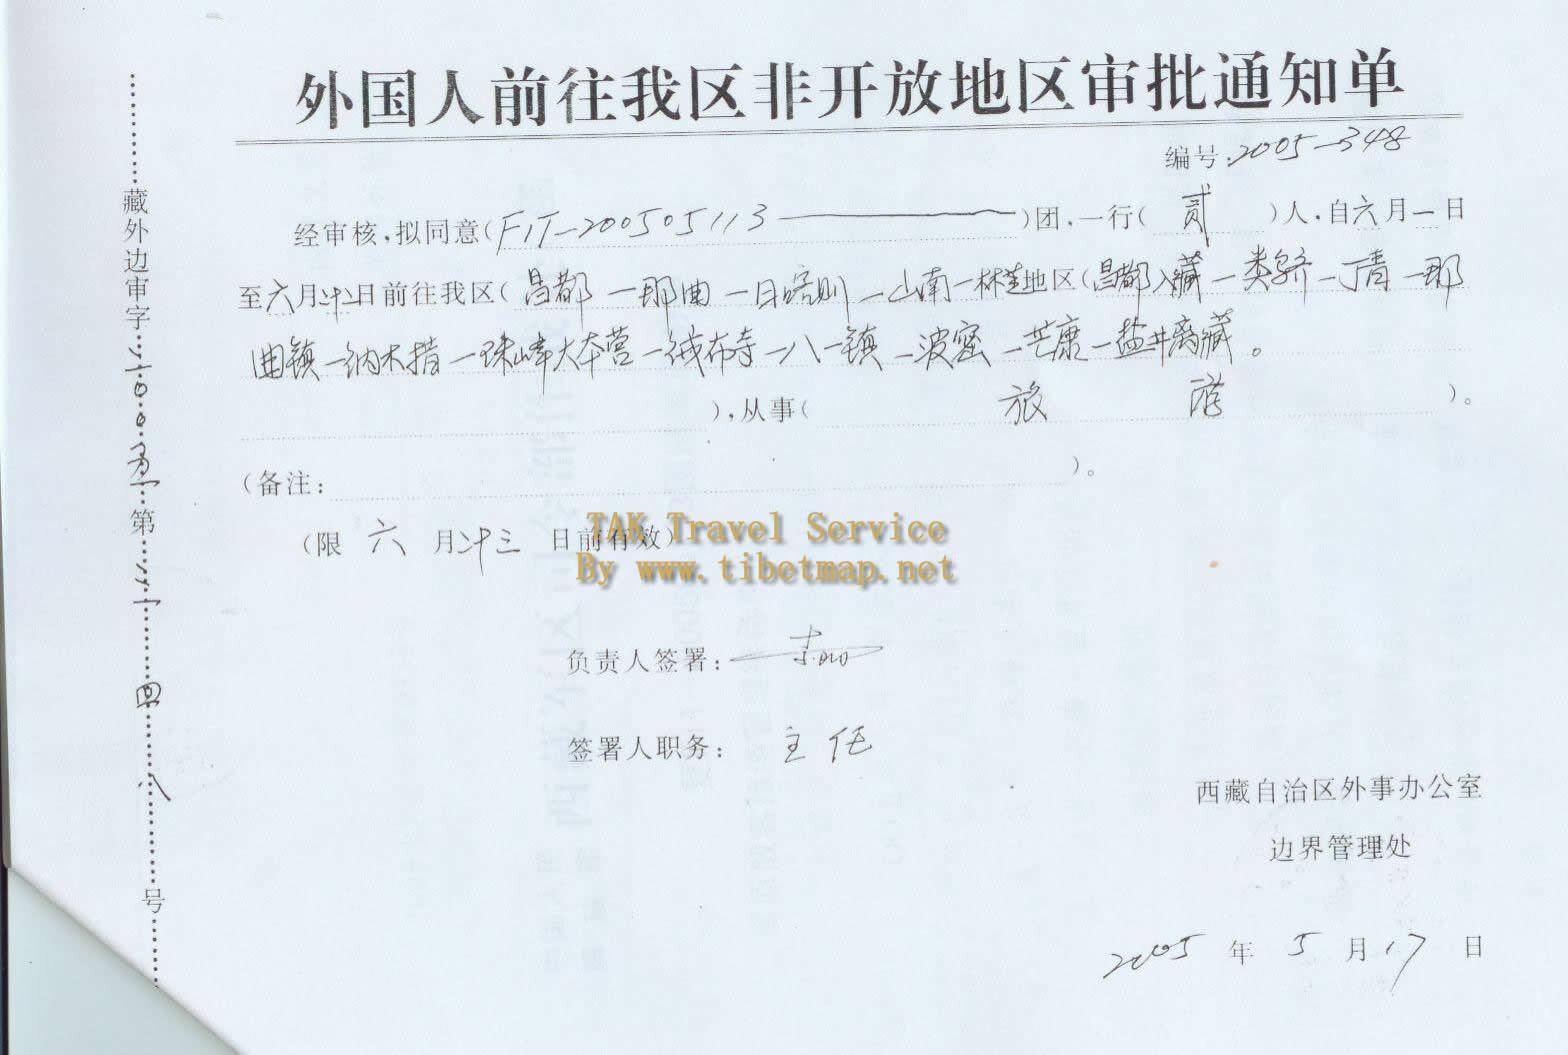 外国人前往我区非开放地区审批通知单
编号:2005-348
经审核,拟同意(FIT-200505113)团,一行(贰)人,自六月一日
至六月廿二日前往我区(昌都—那曲—日喀则—山南—林芝地区(昌都入藏—类乌齐—丁青—那
曲镇—纳木措—珠峰大本营—绒布寺—八一镇—波密—芒康—盐井离藏。
),从事(旅游)。
(备注: )。
(限六月廿三日前有效)
TAK Travel Service
By www.tibetmap.net
负责人签署:
签署人职务: 主任
西藏自治区外事办公室
边界管理处
2005年5月17日
藏外边审字二〇〇五第三四八号